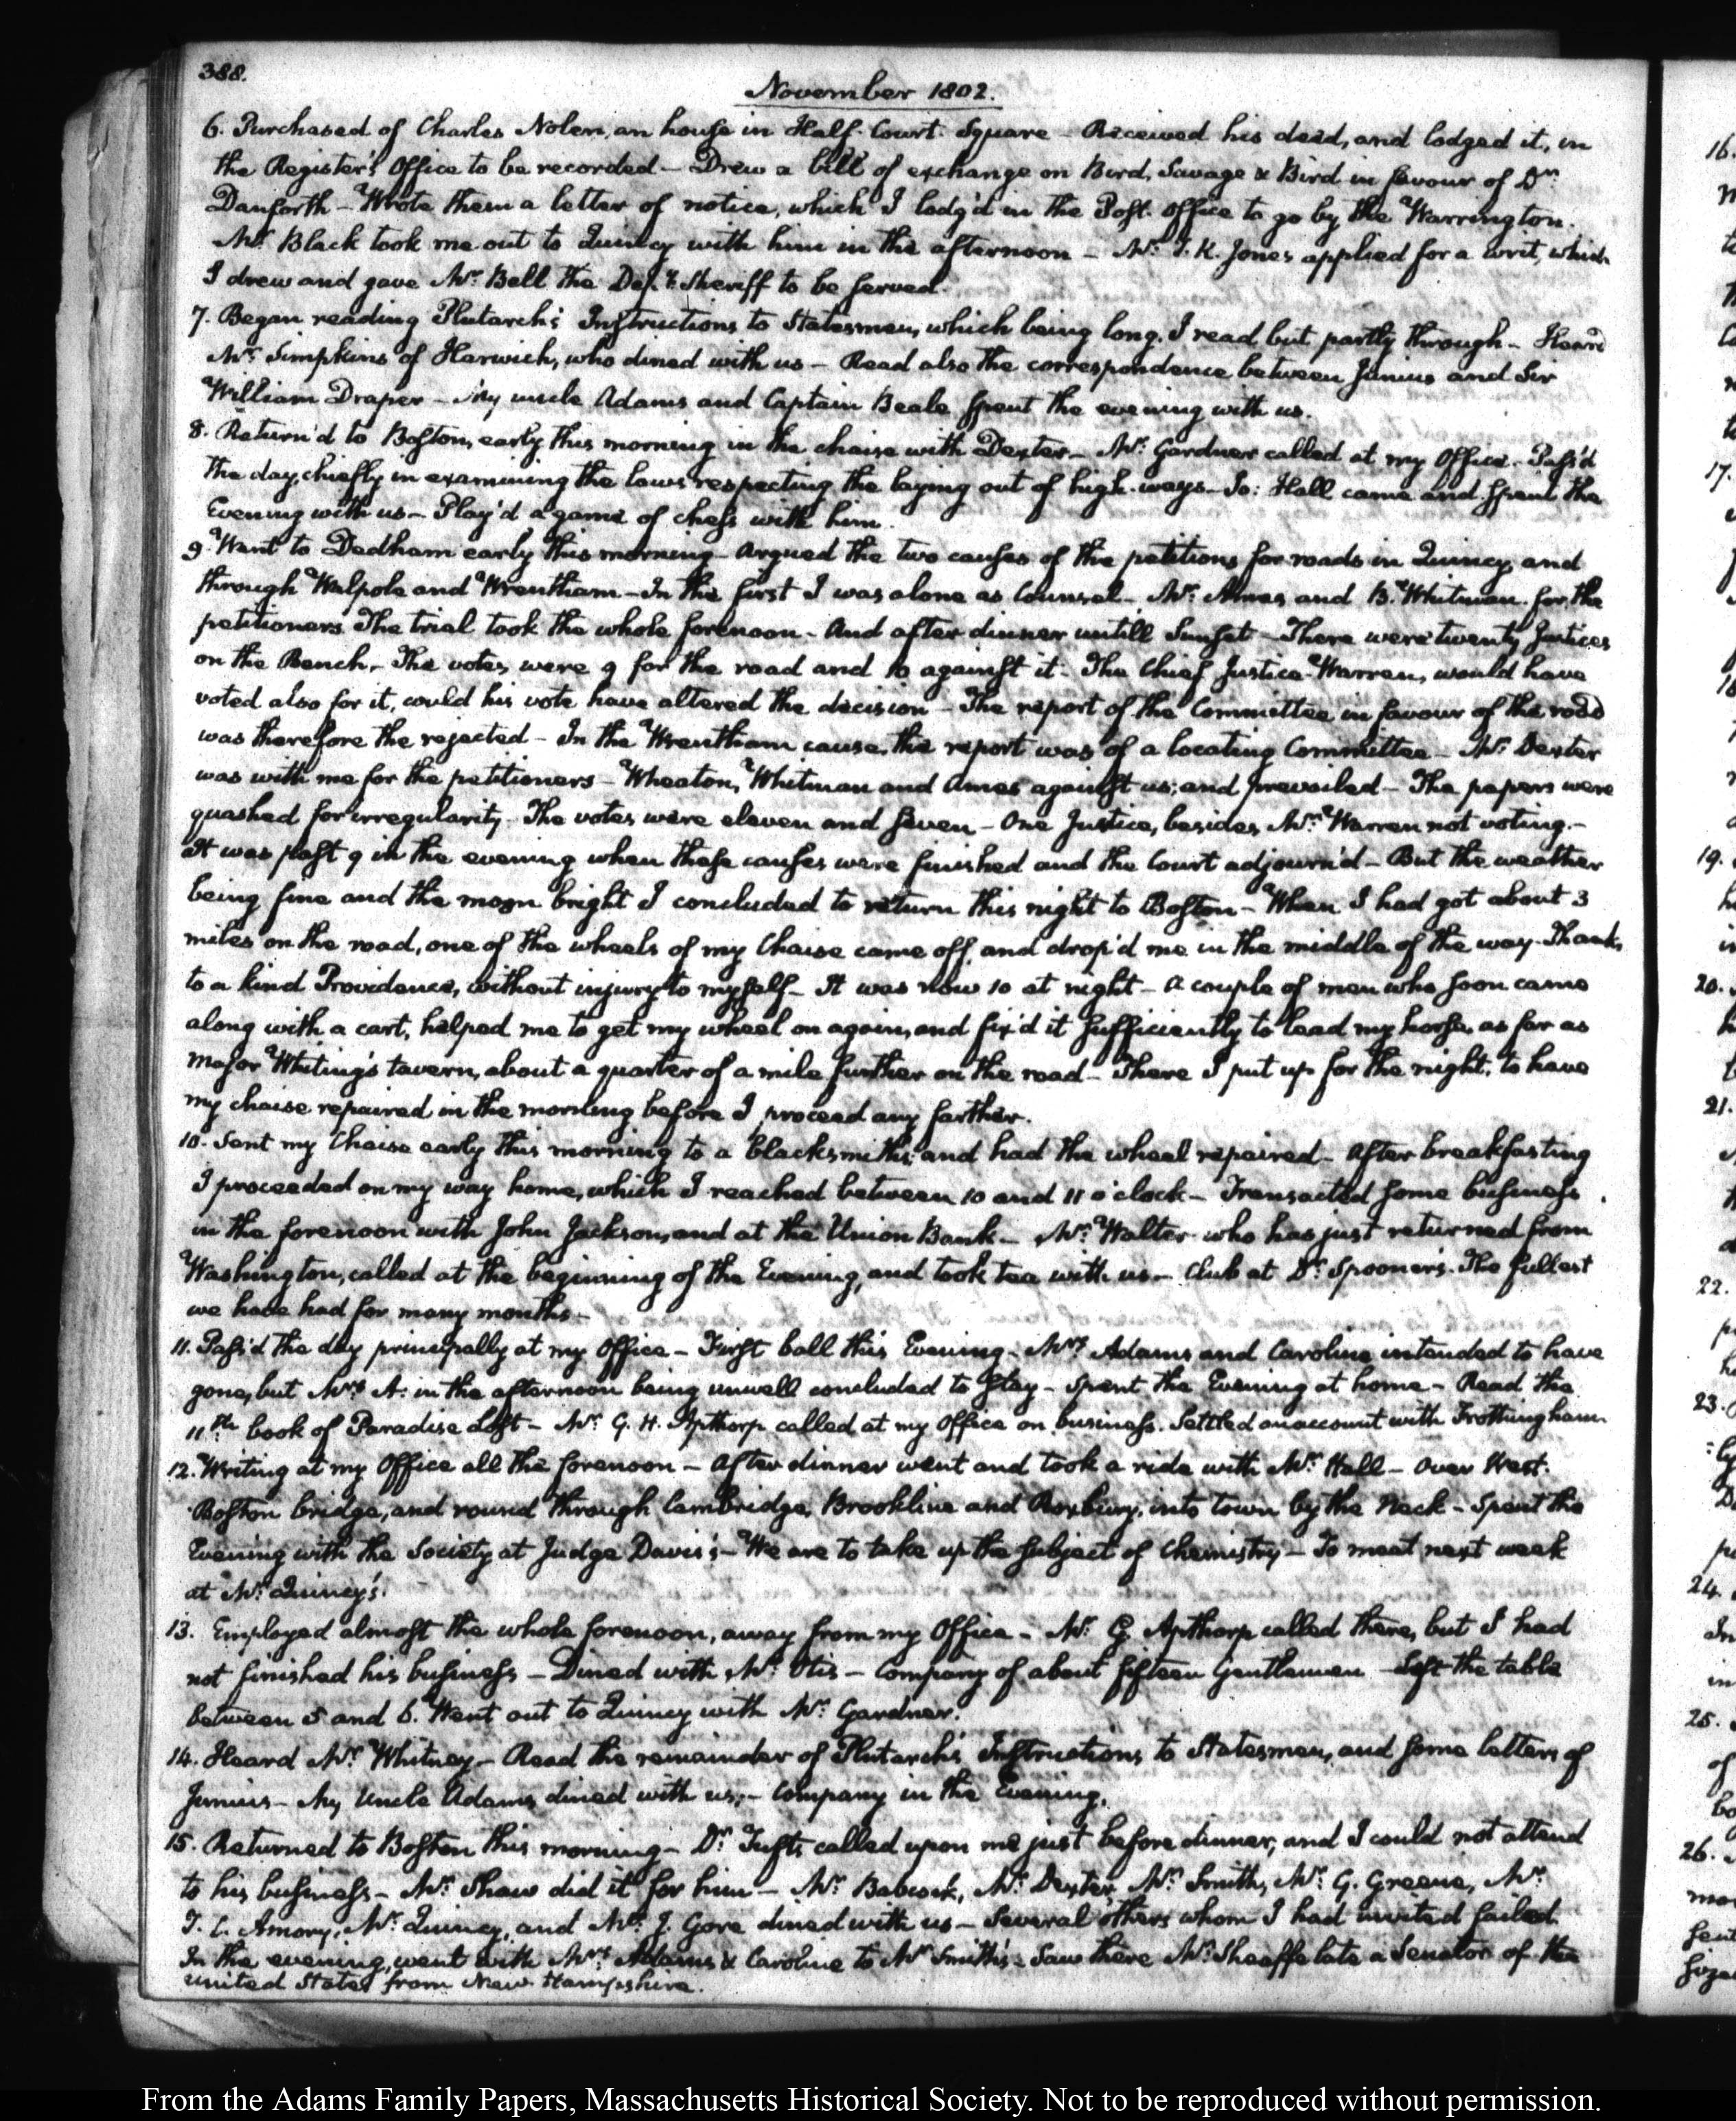 388.
November 1802.
6. Purchased of Charles Nolen, an house in Half-Court-Square - Received his deed, and lodged it, in
the Register's Office to be recorded - Drew a bill of exchange on Bird, Savage & Bird in favour of Dr
Danforth - Wrote them a letter of notice, which I lodg'd in the Post-Office to go by the Warrington.
Mr. Black took me out to Quincy with him in the afternoon - Mr. T. K. Jones applied for a writ, which
I drew and gave Mr. Bell the Dep.y Sheriff to be served.
7. Began reading Plutarch's Instructions to Statesmen, which being long, I read but partly through - Heard
Mr. Simpkins of Harwich, who dined with us - Read also the correspondence between Junius and Sir
William Draper - My uncle Adams and Captain Beale spent the evening with us.
8. Return'd to Boston, early this morning in the chaise with Dexter - Mr. Gardner called at my Office - Pass'd
the day, chiefly in examining the laws respecting the laying out of high-ways - Jo: Hall came and spent the
Evening with us - Play'd a game of chess with him.
9. Went to Dedham early this morning - Argued the two causes of the petitions for roads in Quincy, and
through Walpole and Wrentham - In the first I was alone as Counsel - Mr. Ames and B. Whitman for the
petitioners. The trial took the whole forenoon - And after dinner untill Sunset - There were twenty Justices
on the Bench - The votes were 9 for the road and 10 against it - The Chief Justice Warren, would have
voted also for it, could his vote have altered the decision - The report of the Committee in favour of the road
was therefore the rejected - In the Wrentham cause, the report was of a locating Committee - Mr. Dexter
was with me for the petitioners - Wheaton, Whitman and Ames against us; and prevailed - The papers were
quashed for irregularity - The votes were eleven and seven - One Justice, besides Mr. Warren not voting. -
It was past 9 in the evening when these causes were finished and the Court adjourn'd - But the weather
being fine and the moon bright I concluded to return this night to Boston - When I had got about 3
miles on the road, one of the wheels of my Chaise came off, and drop'd me in the middle of the way - Thanks
to a kind Providence, without injury to myself - It was now 10 at night - A couple of men who soon came
along with a cart, helped me to get my wheel on again, and fix'd it sufficiently to lead my horse, as far as
Major Whiting's tavern, about a quarter of a mile further on the road - There I put up for the night, to have
my chaise repaired in the morning before I proceed any farther.
10. Sent my Chaise early this morning to a blacksmith's, and had the wheel repaired - After breakfasting
I proceeded on my way home, which I reached between 10 and 11 o'clock - Transacted some business
in the forenoon with John Jackson, and at the Union Bank - Mr. Walter who has just returned from
Washington, called at the beginning of the Evening, and took tea with us - Club at Dr. Spooner's. The fullest
we have had for many months -
11. Pass'd the day principally at my Office - First ball this Evening - Mrs. Adams and Caroline intended to have
gone, but Mrs. A: in the afternoon being unwell concluded to stay - Spent the Evening at home - Read the
11th. book of Paradise Lost - Mr. G. H. Apthorp called at my Office on business. Settled an account with Frothingham
12. Writing at my Office all the forenoon - After dinner went and took a ride with Mr. Hall - over West-
Boston bridge, and round through Cambridge, Brookline and Roxbury, into town by the Neck - Spent the
Evening with the Society at Judge Davis's - We are to take up the subject of Chemistry - To meet next week
at Mr. Quincy's.
13. Employed almost the whole forenoon, away from my Office - Mr. G. Apthorp called there, but I had
not finished his business - Dined with Mr. Otis - Company of about fifteen Gentlemen - Left the table
between 5 and 6. Went out to Quincy with Mr. Gardner.
14. Heard Mr. Whitney - Read the remainder of Plutarch's Instructions to Statesmen, and some letters of
Junius - My Uncle Adams dined with us; - Company in the Evening.
15. Returned to Boston this morning - Dr. Tufts called upon me just before dinner, and I could not attend
to his business - Mr. Shaw did it for him - Mr. Babcock, Mr. Dexter, Mr. Smith, Mr. G. Greene, Mr.
T. C. Amory, Mr. Quincy, and Mr. J. Gore dined with us - Several others whom I had invited failed.
In the evening, went with Mrs. Adams & Caroline to Mr. Smith's - Saw there Mr. Sheaffe late a Senator of the
United States from New Hampshire.
From the Adams Family Papers, Massachusetts Historical Society. Not to be reproduced without permission.